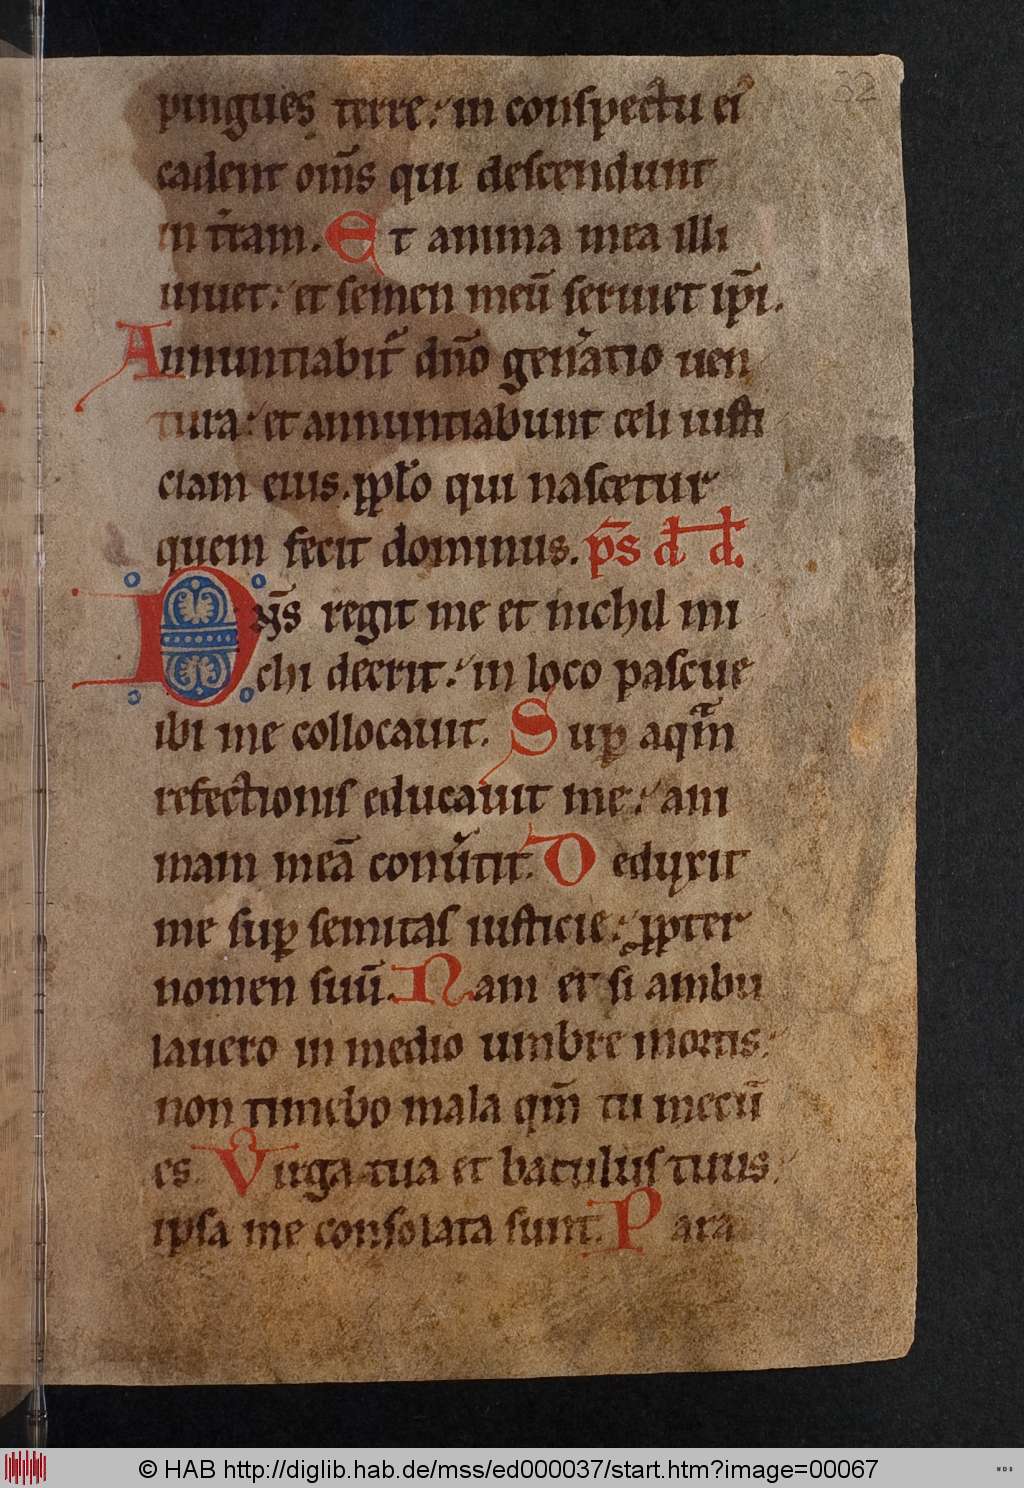 32
pingues terre: in conspectu ei᷒
cadent om̄s qui descendunt
in t̄ram. Et anima mea illi
uiuet: et semen meū seruiet ip̄i.
Annuntiabit᷑ dn̄o gen̄atio uen
tura: et annuntiabunt celi iusti
ciam eius. pp̄lo qui nascetur
quem fecit dominus. p̄s d̄d̄.
Dn̄s regit me et nichil mi
chi deerit: in loco pascue
ibi me collocauit. Suꝑ aqᷓm
refectionis educauit me: ani
mam meā conu̓tit. Deduxit
me suꝑ semitas iusticie: ꝓpter
nomen suū. Nam et si ambu
lauero in medio umbre mortis:
non timebo mala qm̄ tu mecū
es. Virga tua et baculus tuus:
ipsa me consolata sunt. Para
© HAB http://diglib.hab.de/mss/ed000037/start.htm?image=00067